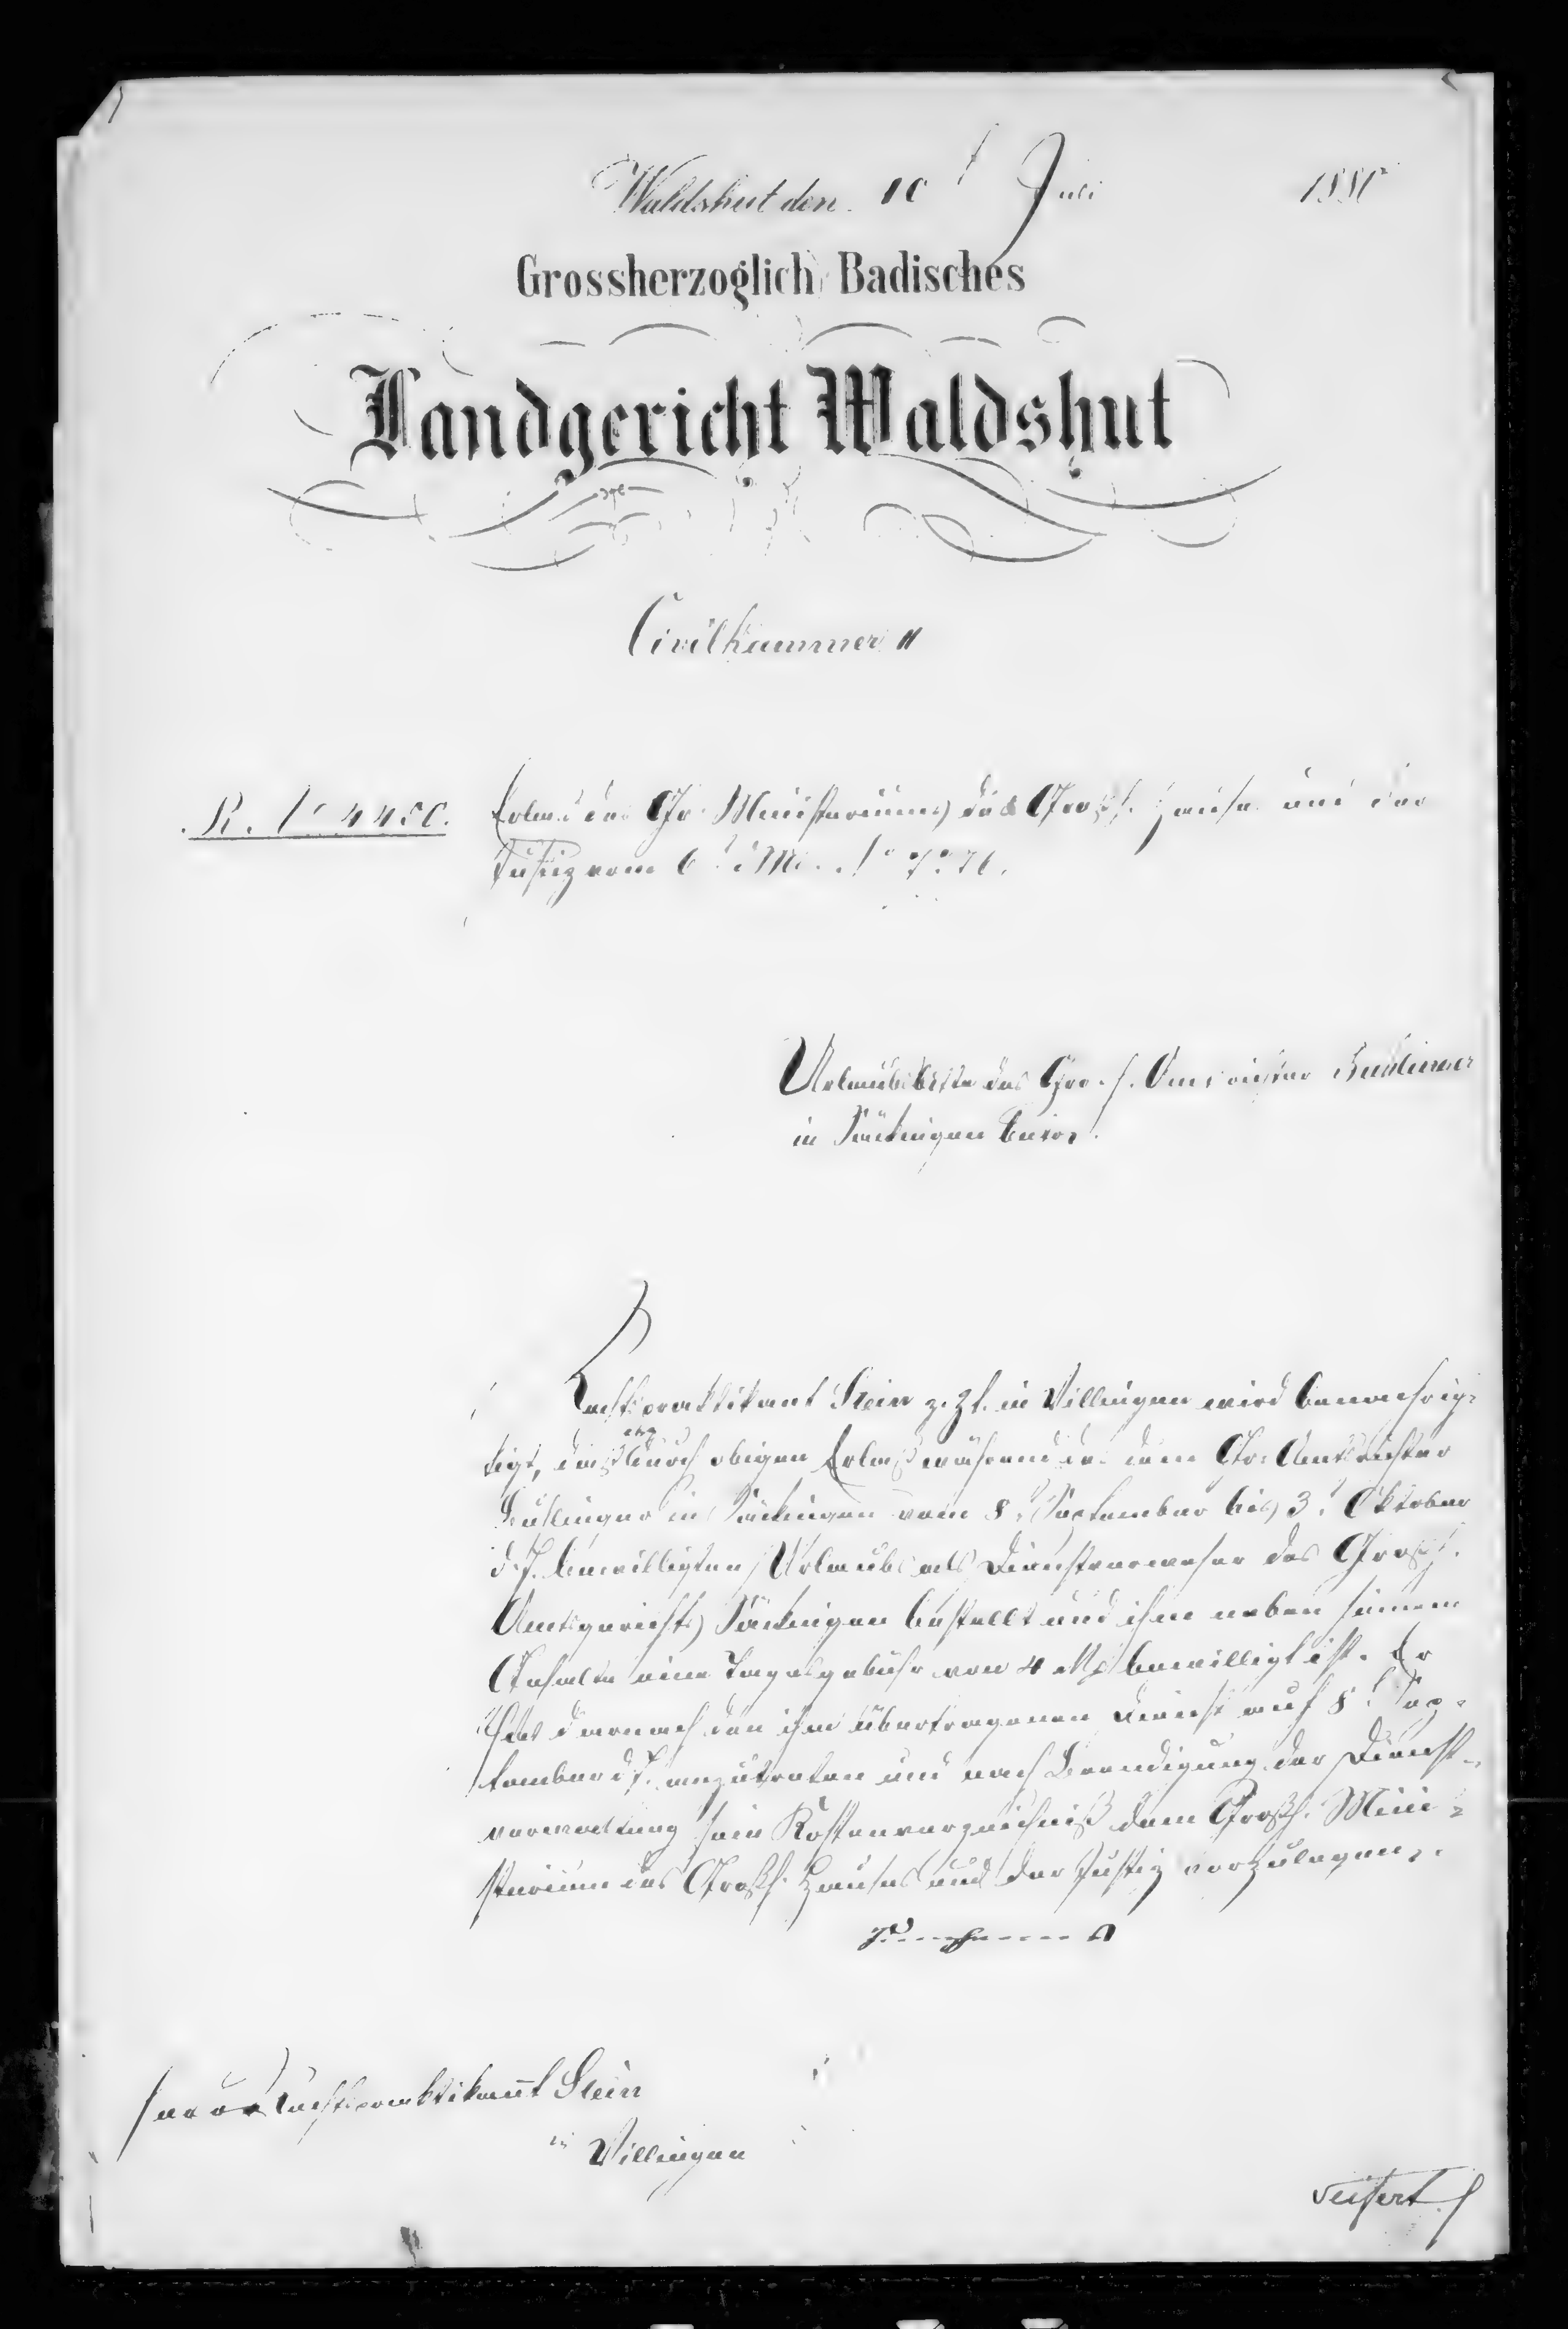 Waldshut den 10t Juli 1880
Grossherzoglich Badisches
Landgericht Waldshut
Civilkammer II
R. No 4450.
Erlass des Gr. Ministeriums des Grossh. Hauses und der
Justiz vom 6t d. Mts.
Urlaubsbitte des Gr. Amtsrichter
in Säckingen betr.
Rechtspraktikant Stein z. Zt. in Villingen wird benachrich-
tigt, daß er durch obigen Erlaß während des dem Gr. Amtsrichter
in Säckingen vom 8t September bis 3t Oktober
d. J. bewilligten Urlaubs als Dienstverweser des Großh.
Amtsgerichts Säckingen bestellt und ihm neben seinem
Gehalte eine Tagesgebühr von 4 M bewilligt ist. Er
hat darnach den ihm übertragenen Dienst auf 8t Sep-
tember d. J. anzutreten und nach Beendigung der Dienst-
verwaltung sein Kostenverzeichniß dem Großh. Mini-
sterium des Großh. Hauses und der Justiz vorzulegen.
Rechtspraktikant Stein
in Villingen
Seifert